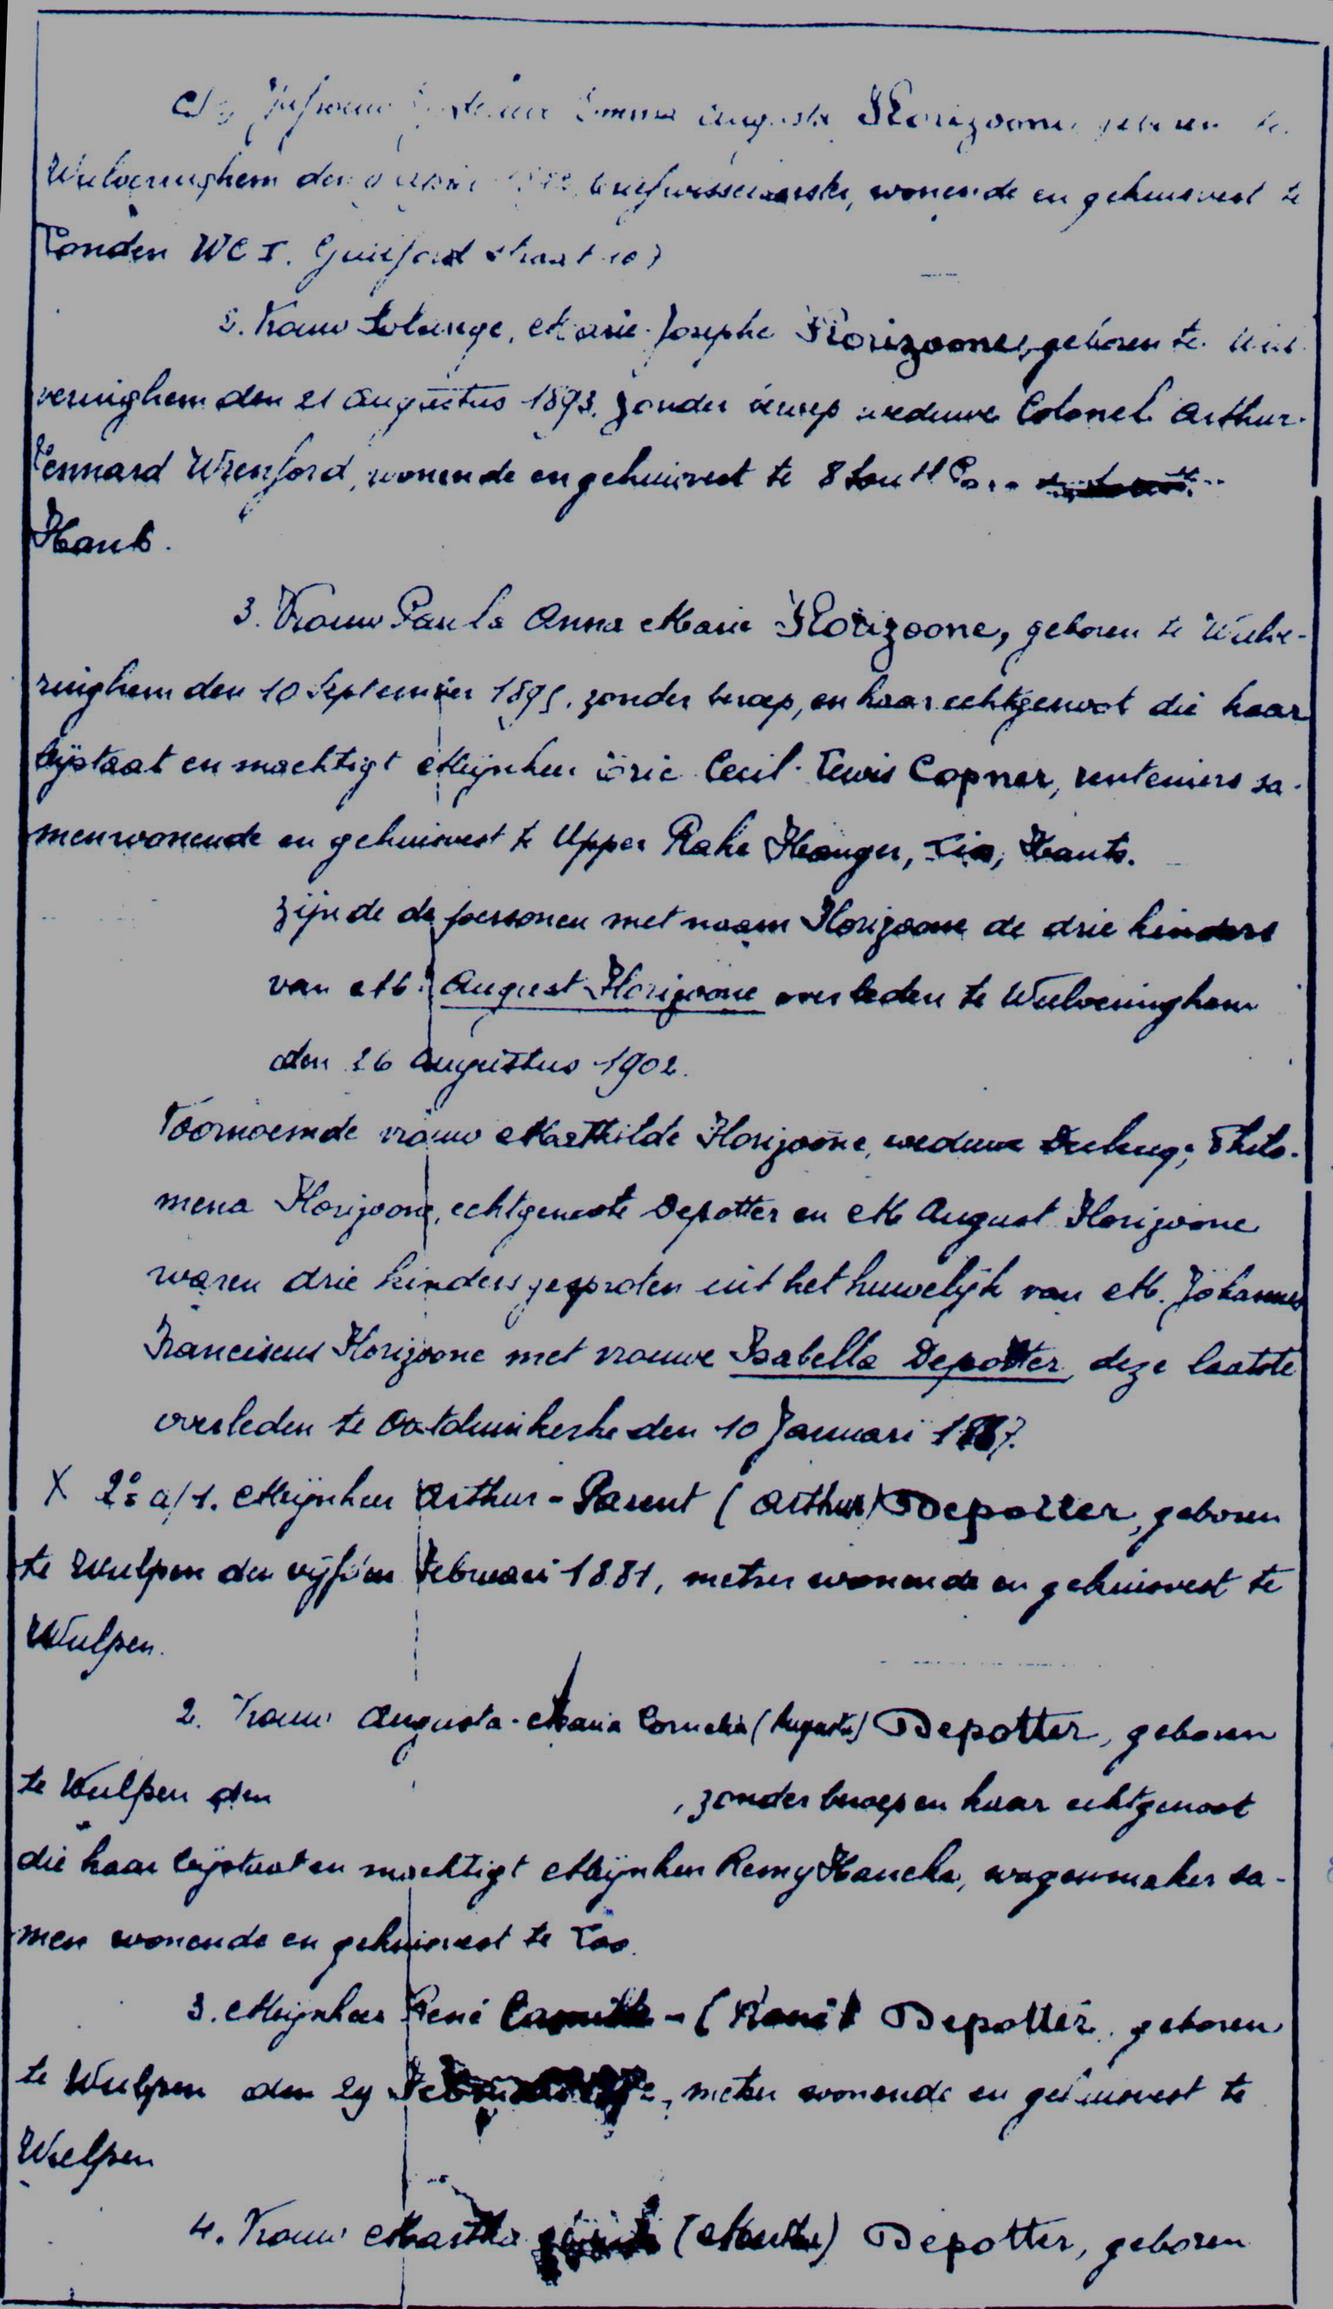 Emma Augusta Florizoone, geboren te
Wulveringhem den briefwisselaarster, wonende en gehuisvest te
Londen WC I. Guilford straat 107
2. Vrouw Solange, Marie-Josephe Florizoone, geboren te Wul-
veringhem den 21 Augustus 1893. zonder beroep weduwe Colonel Arthur-
Lennard Wrenford, wonende en gehuisvest te 8 South
Hants.
3. Vrouw Paula Anna Marie Florizoone, geboren te Wulve-
ringhem den 10 September 1895. zonder beroep, en haar echtgenoot die haar
bijstaat en machtigt Mijnheer Eric Cecil Lewis Copner, renteniers sa-
menwonende en gehuisvest te Upper Rake Hanger, Liss, Hants.
zijnde de personen met naam Florizoone de drie kinders
van M. August Florizoone overleden te Wulveringhem
den 26 Augustus 1902.
Voornoemde vrouw Mathilde Florizoone, weduwe Philo-
mena Florizoone, echtgenoote Depotter en M August Florizoone
waren drie kinders gesproten uit het huwelijk van M. Johannes
Franciscus Florizoone met vrouwe Isabella Depotter, deze laatste
overleden te Oostduinkerke den 10 Januari 1887.
X 2° a/1. Mijnheer Arthur-Parent (Arthur) Depotter, geboren
te Wulpen den vijfden Februari 1881, metser wonende en gehuisvest te
Wulpen.
2. Vrouw Augusta-Maria Cornelia (Augusta) Depotter, geboren
te Wulpen den , zonder beroep en haar echtgenoot
die haar bijstaat en machtigt Mijnheer Remy Hancke, wagenmaker sa-
men wonende en gehuisvest te Loo.
3. Mijnheer René Camille - (René) Depotter, geboren
te Wulpen den 29 metser wonende en gehuisvest te
Wulpen
4. Vrouw Martha (Martha) Depotter, geboren